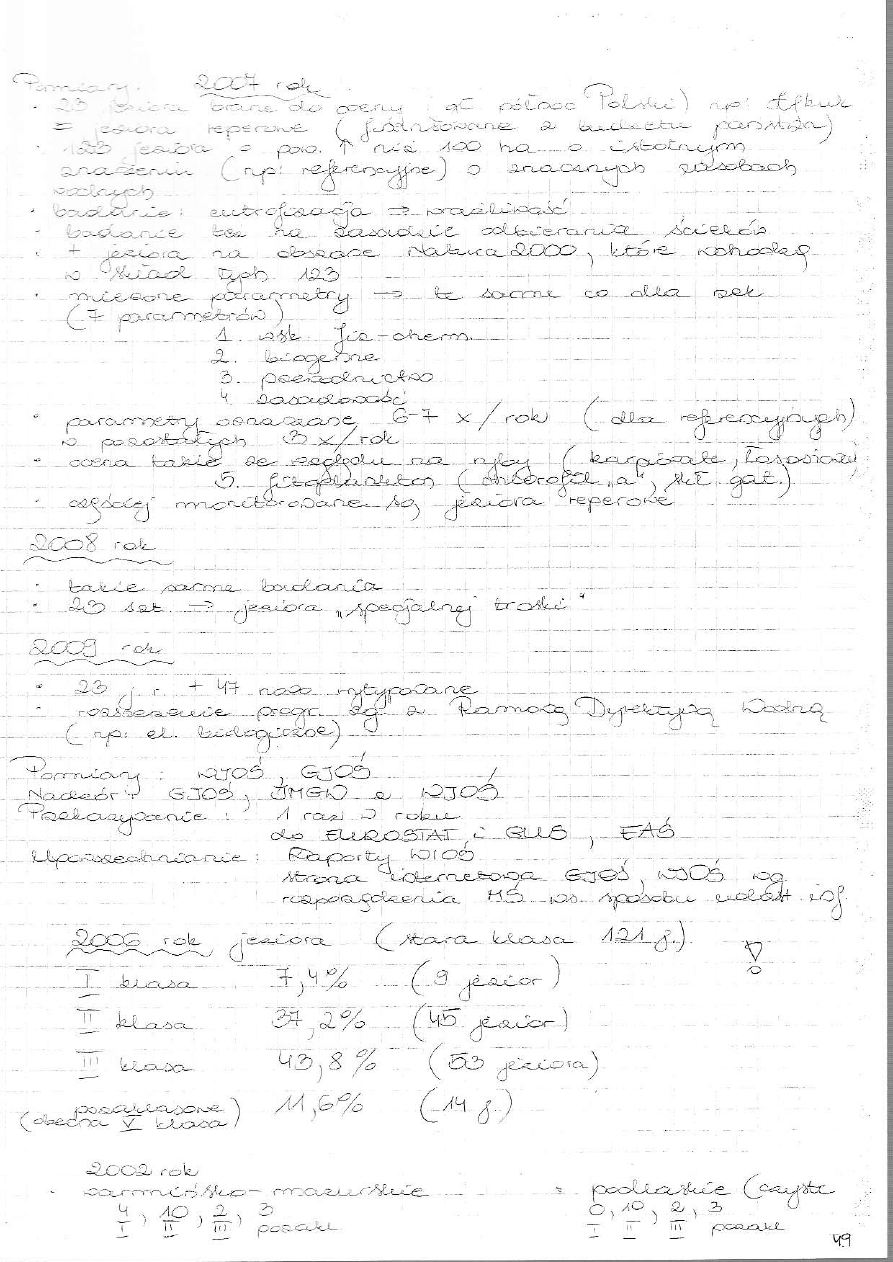 Pomiary: 2007 rok
· 23 jeziora brane do oceny ( gł. północ Polski) np:
= jeziora reperowe (finansowane z budżetu państwa)
· 123 jeziora o pow. ↑ niż 100 ha o istotnym
znaczeniu (np: referencyjne) o znacznych zasobach
wodnych
· badanie: eutrofizacja → wrażliwość
· badanie też na zasadzie odbierania ścieków
· + jeziora na obszarze Natura 2000, które wchodzą
w skład tych 123
· mierzone parametry → te same co dla rzek
(7 parametrów)
1. wsk. fiz-chem.
2. biogenne
3. przewodnictwo
4. zasadowość
· parametry oznaczane 6-7 x/rok (dla referencyjnych)
w pozostałych 3 x/rok
· ocena także ze względu na ryby (karpiowate, łososiowe)
5. fitoplankton (chlorofil „a", skł. gat.)
· częściej monitorowane są jeziora reperowe
2008 rok
· takie same badania
· 23 szt. → jeziora „specjalnej troski"
2009 rok
· 23 j. r. + 47 nowo wytypowane
· rozszerzenie progr. zg z Ramową Dyrektywą Wodną
(np: el. biologiczne)
Pomiary: WIOŚ, GIOŚ
Nadzór: GIOŚ, IMGW i WIOŚ
Przekazywanie: 1 raz w roku
do EUROSTAT i GUS, EAŚ
Upowszechnianie: Raporty WIOŚ
strona internetowa GIOŚ, WIOŚ wg
rozporządzenia MŚ ws. sposobu udost. inf.
2006 rok jeziora (stara klasa 121 j.) !
I klasa 7,4% (9 jezior)
II klasa 37,2% (45 jezior)
III klasa 43,8% (53 jeziora)
pozaklasowe 11,6% (14 j.)
(obecna V klasa)
2002 rok
· warmińsko-mazurskie = podlaskie (czyste
4/I, 10/II, 2/III, 3 pozakl 0/I, 10/II, 2/III, 3 pozakl
49